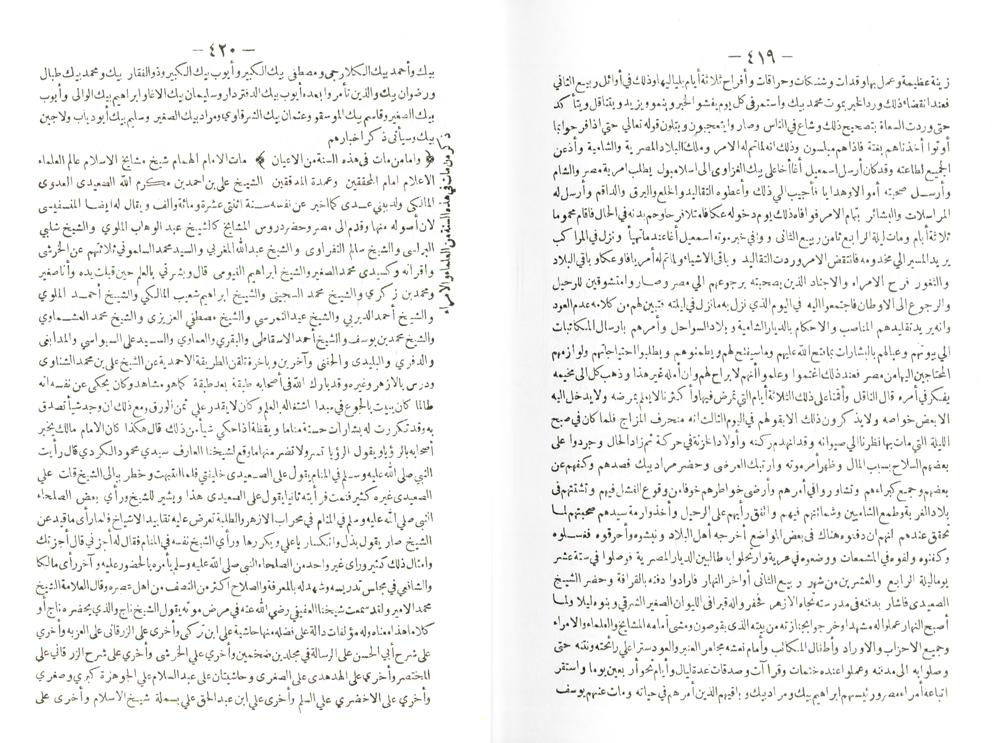 — ٤١٩ —
زينة عظيمة وعمل بها وقدات وشنكات وحراقات وأفراح ثلاثة أيام بلياليها وذلك في أوائل ربيع الثاني
فعند انقضاء ذلك ورد الخبر بموت محمد بيك واستمر في كل يوم يفشو الخبر وينمو ويزيد ويتناقل ويتأكد
حتى وردت السعاة بتصحيح ذلك وشاع في الناس وصاروا يتعجبون ويتلون قوله تعالى حتى اذا فرحوا بما
أوتوا أخذناهم بغتة فاذا هم مبلسون وذلك انه لما تم له الامر وملك البلاد المصرية والشامية وأذعن
الجميع لطاعته وقد كان أرسل اسمعيل أغا أخا علي بيك الغزاوي الى اسلامبول يطلب امرية مصر والشام
وأرسل صحبته أموالا وهدايا فأجيب الى ذلك وأعطوه التقاليد والخلع والبرق والداقم وأرسل له
المراسلات والبشائر بتمام الامر فوافاه ذلك يوم دخوله عكا فامتلأ فرحا وحم بدنه في الحال فأقام محموما
ثلاثة أيام ومات ليلة الرابع ثامن ربيع الثاني ووافى خبر موته اسمعيل أغا عندما تهيأ ونزل في المراكب
يريد المسير الى مخدومه فانتقض الامر وردت التقاليد وباقي الاشياء ولما تم له أمر يافا وعكا وباقي البلاد
والثغور فرح الامراء والاجناد الذين بصحبته برجوعهم الى مصر وصاروا متشوقين للرحيل
والرجوع الى الاوطان فاجتمعوا اليه في اليوم الذي نزل به ما نزل في ليلته فتبين لهم من كلامه عدم العود
وانه يريد تقليدهم المناصب والاحكام بالديار الشامية وبلاد السواحل وأمرهم بارسال المكاتبات
الى بيوتهم وعيالهم بالبشارات بما فتح الله عليهم وما سيفتح لهم ويطمنوهم ويطلبوا احتياجاتهم ولوازمهم
المحتاجين اليها من مصر فعند ذلك اغتموا وعلموا أنهم لا براح لهم وان أمله غير هذا وذهب كل الى مخيمه
يفكر في أمره قال الناقل وأقمنا على ذلك الثلاثة أيام التي تمرض فيها وأكثرنا لا يعلم بمرضه ولا يدخل اليه
الا بعض خواصه ولا يذكرون ذلك الا بقولهم في اليوم الثالث انه منحرف المزاج فلما كان في صبح
الليلة التي مات بها نظرنا الى صيوانه وقد انهدم ركنه وأولاد الخزنة في حركة ثم زاد الحال وجردوا على
بعضهم السلاح بسبب المال وظهر أمر موته وارتبك العرضي وحضر مراد بيك فصدهم وكفهم عن
بعضهم وجمع كبراءهم وتشاوروا في أمرهم وأرضى خواطرهم خوفا من وقوع الفشل فيهم وتشتتهم في
بلاد الغربة وطمع الشاميين وشماتتهم فيهم واتفق رأيهم على الرحيل وأخذوا رمة سيدهم صحبتهم لما
تحقق عندهم انهم ان دفنوه هناك في بعض المواضع أخرجه أهل البلاد ونبشوه وأحرقوه فغسلوه
وكفنوه ولفوه في المشمعات ووضعوه في عربة وارتحلوا به طالبين الديار المصرية فوصلوا في ستة عشر
يوما ليلة الرابع والعشرين من شهر ربيع الثاني أواخر النهار فأرادوا دفنه بالقرافة وحضر الشيخ
الصعيدي فأشار بدفنه في مدرسته تجاه الازهر فحفروا له قبرا في الليوان الصغير الشرقي وبنوه ليلا ولما
أصبح النهار عملوا له مشهدا وخرجوا بجنازته من بيته الذي بقوصون ومشى أمامه المشايخ والعلماء والامراء
وجميع الاحزاب والاوراد وأطفال المكاتب وأمام نعشه مجامر العنبر والعود سترا على رائحته ونتنه حتى
وصلوا به الى مدفنه وعملوا عنده ختمات وقرآات وصدقات عدة ليال وأيام نحو أربعين يوما واستقر
اتباعه أمراء مصر ورئيسهم ابراهيم بيك ومراد بيك وباقيهم الذين أمرهم في حياته ومات عنهم يوسف
— ٤٢٠ —
بيك وأحمد بيك الكلارجي ومصطفى بيك الكبير وأيوب بيك الكبير وذو الفقار بيك ومحمد بيك طبال
ورضوان بيك والذين تأمروا بعده أيوب بيك الدفتردار وسليمان بيك الاغا وابراهيم بيك الوالي وأيوب
بيك الصغير وقاسم بيك الموسقو وعثمان بيك الشرقاوي ومراد بيك الصغير وسليم بيك أبو دياب ولاجين
بيك وسيأتي ذكر اخبارهم
ذكر من مات في هذه السنة من العلماء والامراء
﴿ وأما من مات في هذه السنة من الاعيان ﴾ مات الامام الهمام شيخ مشايخ الاسلام عالم العلماء
الاعلام امام المحققين وعمدة المدققين الشيخ علي بن احمد بن مكرم الله الصعيدي العدوي
المالكي ولد ببني عدي كما اخبر عن نفسه سنة اثنتي عشرة ومائة وألف ويقال له ايضا المنفيسي
لان أصوله منها وقدم الى مصر وحضر دروس المشايخ كالشيخ عبد الوهاب الملوي والشيخ شلبي
البرلسي والشيخ سالم النفراوي والشيخ عبد الله المغربي والسيد محمد السلموني ثلاثتهم عن الخرشي
واقرانه وكسيدي محمد الصغير والشيخ ابراهيم الفيومي قال وبشرني بالعلم حين قبلت يده وأنا صغير
ومحمد بن زكري والشيخ محمد السجيني والشيخ ابراهيم شعيب المالكي والشيخ أحمد الملوي
والشيخ أحمد الديربي والشيخ عيد النمرسي والشيخ مصطفى العزيزي والشيخ محمد العشماوي
والشيخ محمد بن يوسف والشيخ أحمد الاسقاطي والبقري والعماوي والسيد علي السيواسي والمدابغي
والدفري والبليدي والحفني وآخرين وبآخرة تلقن الطريقة الاحمدية عن الشيخ علي بن محمد الشناوي
ودرس بالازهر وغيره وقد بارك الله في أصحابه طبقة بعد طبقة كما هو مشاهد وكان يحكي عن نفسه انه
طالما كان يبيت بالجوع في مبدا اشتغاله بالعلم وكان لا يقدر على ثمن الورق ومع ذلك ان وجد شيأ تصدق
به وقد تكررت له بشارات حسنة مناما ويقظة اذا حكي شيأ من ذلك قال هكذا كان الامام مالك يخبر
أصحابه بالرؤيا ويقول الرؤيا تسر ولا تضر منها ما وقع لشيخنا العارف سيدي محمود الكردي قال رأيت
النبي صلى الله عليه وسلم في المنام يقول علي الصعيدي خليفتي فلما انتبهت وخطر ببالي الشيخ قلت علي
الصعيدي غيره كثير فنمت فرأيته ثانيا يقول علي الصعيدي هذا ويشير للشيخ ورأى بعض الصلحاء
النبي صلى الله عليه وسلم في المنام في محراب الازهر والطلبة تعرض عليه تقاييد الاشياخ فلما رأى ما قيد عن
الشيخ صار يقول بذل وانكسار يا علي ويكررها ورأى الشيخ نفسه في المنام فقال له أجزني قال أجزتك
وأمثال ذلك كثير ورأى غير واحد من الصلحاء النبي صلى الله عليه وسلم يأمره بالحضور عليه وآخر رأى مالكا
والشافعي في مجالس تدريسه وشهد له بالمعرفة والصلاح أكثر من النصف من اهل عصره وقال العلامة الشيخ
محمد الامير ولقد سمعت شيخنا العفيفي رضي الله عنه في مرض موته يقول الشيخ ناج والذي يحضره ناج أو
كلاما هذا معناه وله مؤلفات دالة على فضله منها حاشية على ابن تركي وأخرى على الزرقاني على العزية وأخرى
على شرح أبي الحسن على الرسالة في مجلدين ضخمين وأخرى على الخرشي وأخرى على شرح الزرقاني على
المختصر وأخرى على الهدهدي على الصغرى وحاشيتان على عبد السلام على الجوهرة كبرى وصغرى
وأخرى على الاخضري على السلم وأخرى على ابن عبد الحق على بسملة شيخ الاسلام وأخرى على